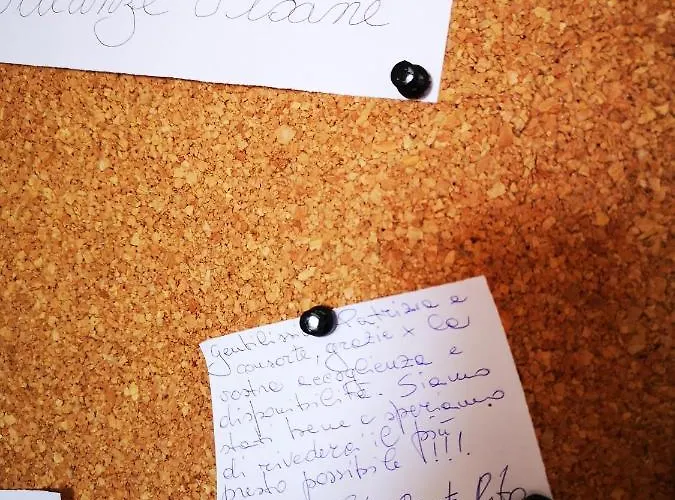 Vacanze Pisane
Gentilissima Patrizia e
consorte, grazie x la
vostra accoglienza e
disponibilità. Siamo
stati bene e speriamo
di rivederci il più
presto possibile!!!